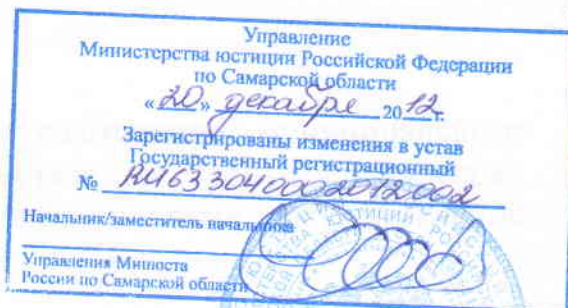 Управление
Министерства юстиции Российской Федерации
по Самарской области
«20» декабря 2012г.
Зарегистрированы изменения в устав
Государственный регистрационный
№ RU633040002012002
Начальник/заместитель начальника
Управления Минюста
России по Самарской области